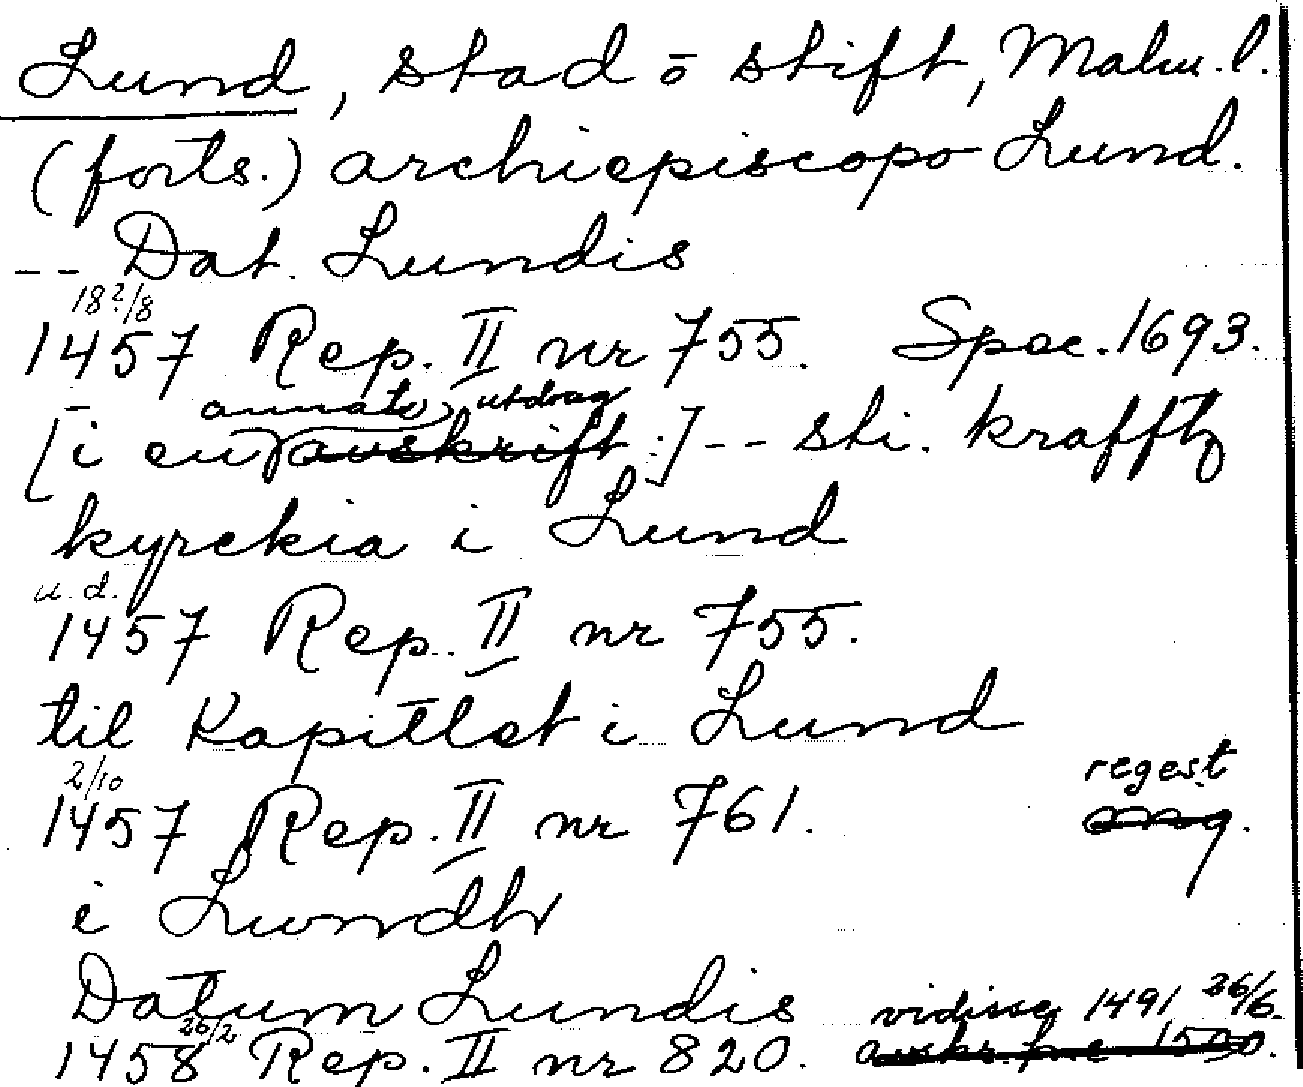 Lund, stad o stift, Malm. l.
(forts.) archiepiscopo Lund.
-- Dat. Lundis
18 2/8
1457 Rep. II nr 755. Spec. 1693.
annato utdrag
[i en avskrift.] -- sti. krafftz
kyrckia i Lund
u. d.
1457 Rep. II nr 755.
til Kapitlet i Lund
2/10 regest
1457 Rep. II nr 761.
i Lwndh
Datum Lundis vidisse 1491 26/6.
26/2
1458 Rep. II nr 820. avskr. fr. c. 1500.